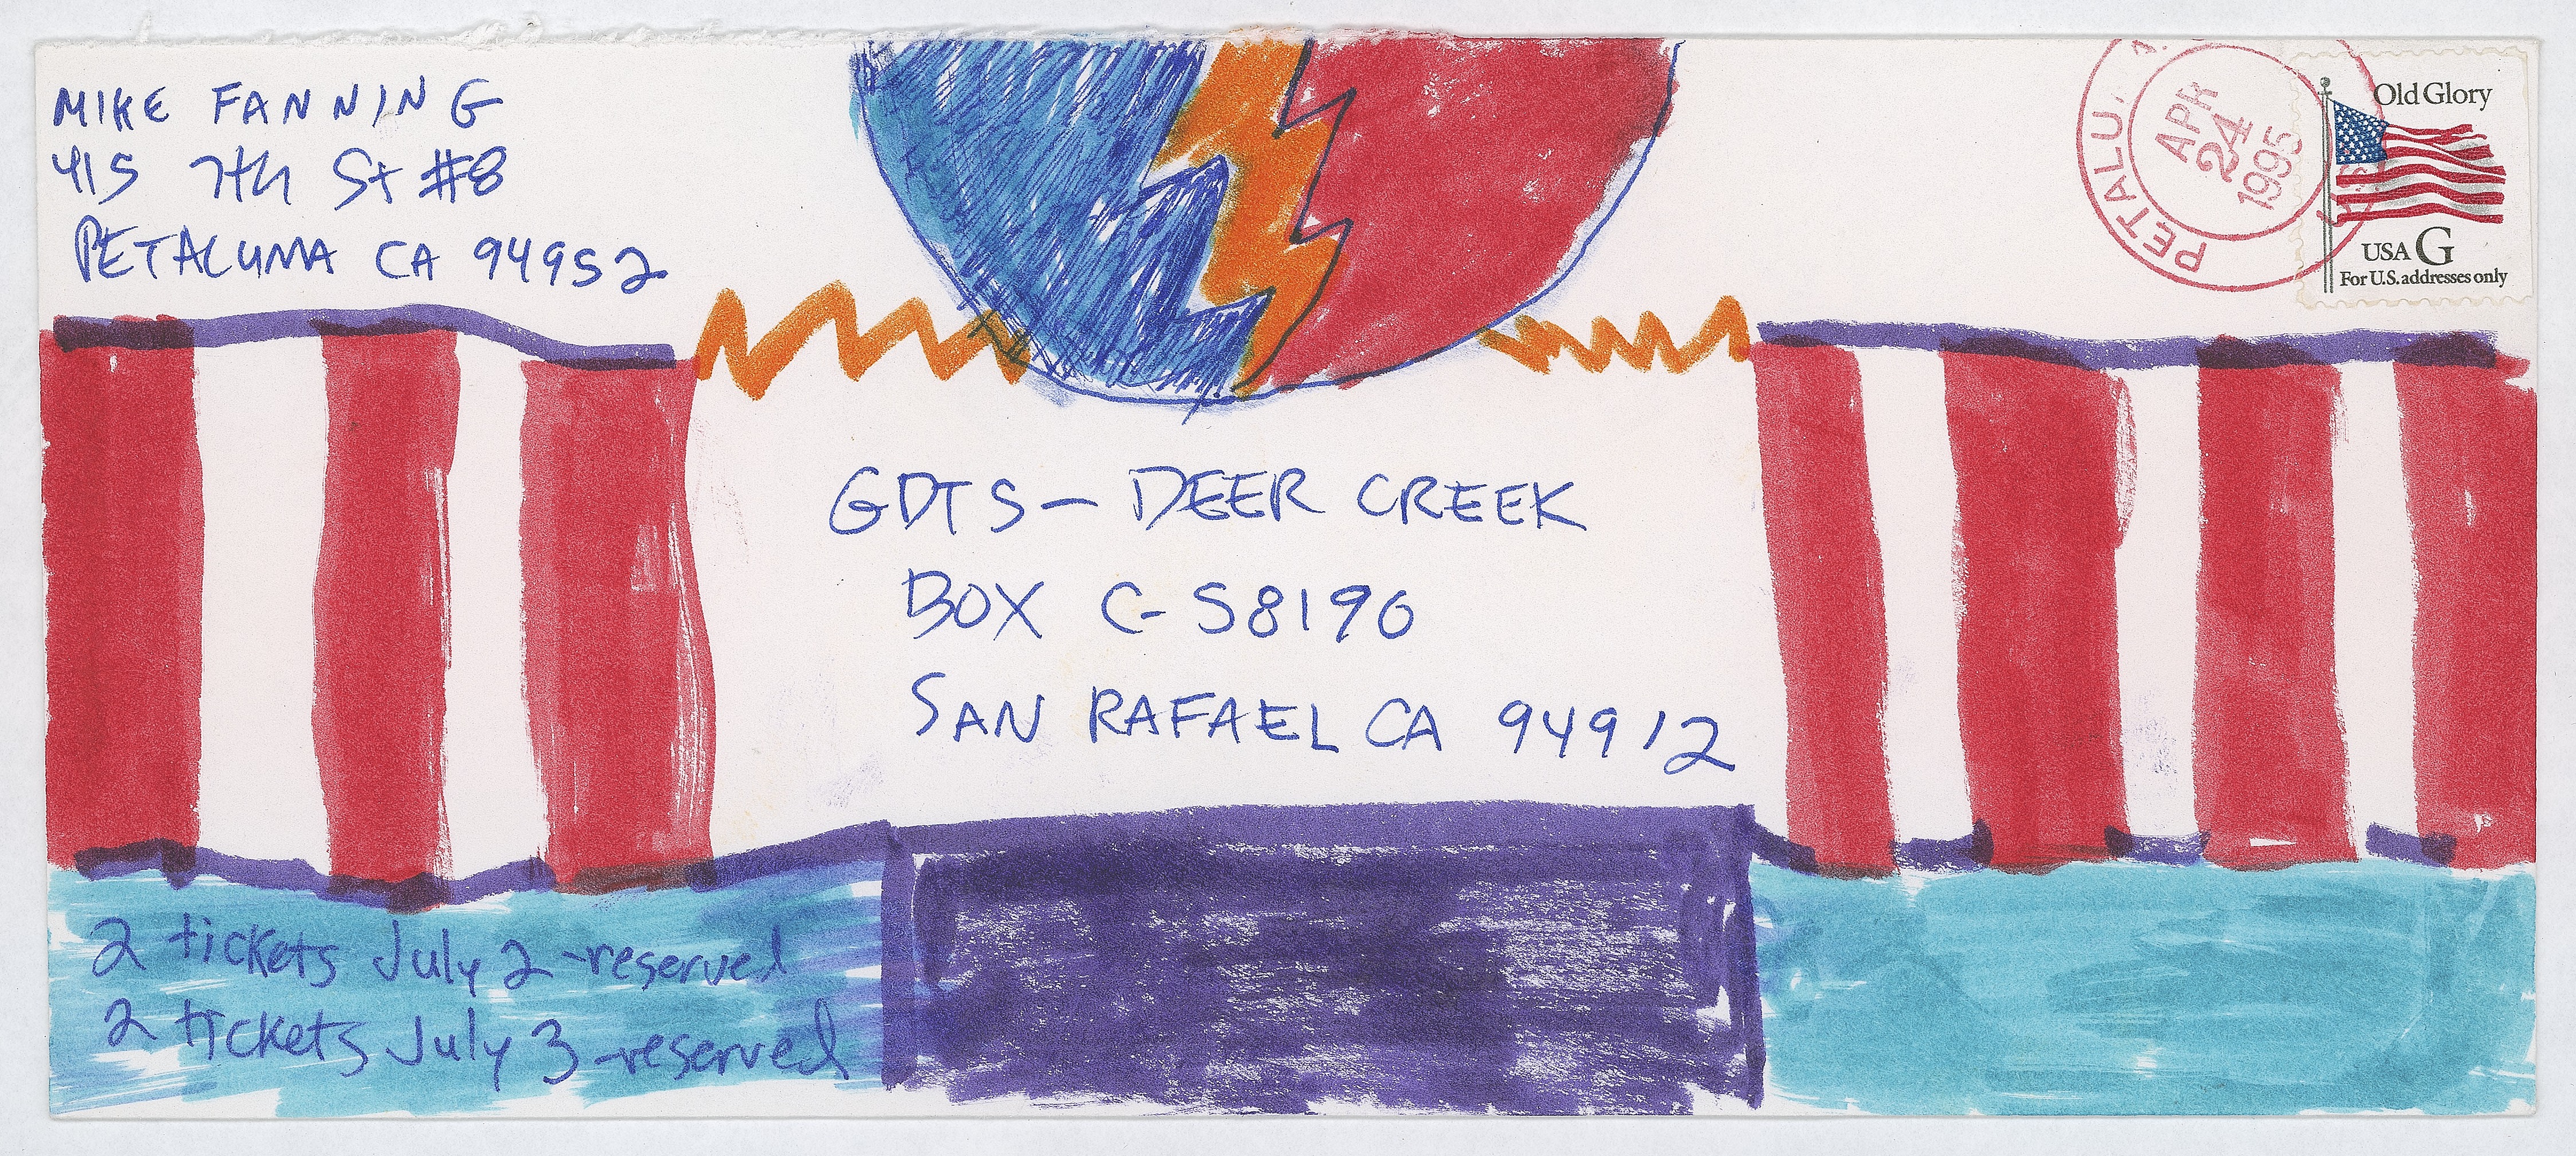 MIKE FANNING
415 7th St #8
PETALUMA CA 94952
PETALU
APR
24
1995
Old Glory
USA G
For U.S. addresses only
GDTS- DEER CREEK
BOX C-S8190
SAN RAFAEL CA 94912
2 tickets July 2 -reserved
2 tickets July 3 -reserved